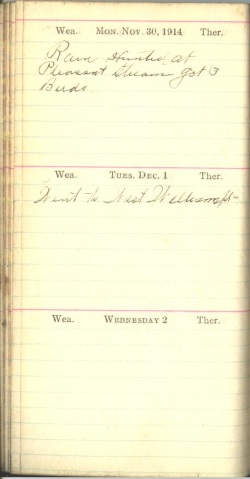 Wea. MON. NOV. 30, 1914 Ther.
Rain Hunted at
Pleasant Stream got 3
Birds
Wea. TUES. DEC. 1 Ther.
Went to West Williamspt
Wea. WEDNESDAY 2 Ther.